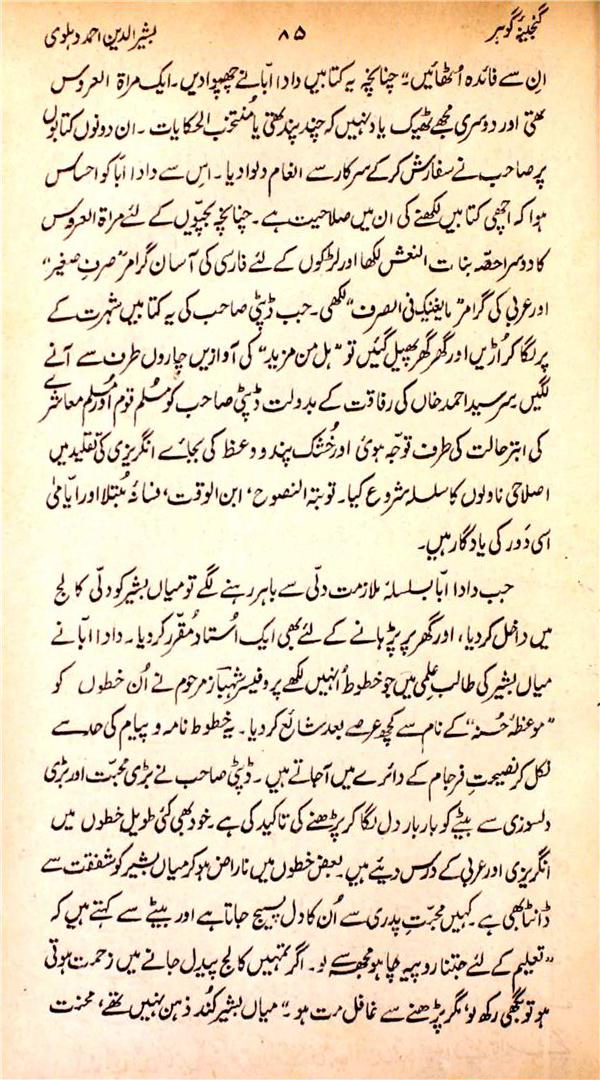 گنجینۂ گوہر ۸۵ بشیر الدین احمد دہلوی
ان سے فائدہ اُٹھائیں۔" چنانچہ یہ کتابیں دادا ابّا نے چھپوا دیں۔ ایک مراۃ العروس
تھی اور دوسری مجھے ٹھیک یاد نہیں کہ چند پند تھی یا مُنتخب الحکایات۔ ان دونوں کتابوں
پر صاحب نے سفارش کرکے سرکار سے انعام دلوا دیا۔ اس سے دادا ابّا کو احساس
ہوا کہ اچھی کتابیں لکھنے کی ان میں صلاحیت ہے۔ چنانچہ بچیّوں کے لئے مراۃ العروس
کا دوسرا حصّہ بنات النعش لکھا اور لڑکوں کے لئے فارسی کی آسان گرامر "صرفِ صغیر"
اور عربی کی گرامر "مایغنیک فی الصرف" لکھی۔ جب ڈپٹی صاحب کی یہ کتابیں شہرت کے
پر لگا کر اُڑیں اور گھر گھر پھیل گئیں تو "ہل من مزید" کی آوازیں چاروں طرف سے آنے
لگیں۔ سر سید احمد خاں کی رفاقت کے بدولت ڈپٹی صاحب کو مُسلم قوم اور مُسلم معاشرے
کی ابتر حالت کی طرف توجّہ ہوئی اور خُشک پند و وعظ کی بجائے انگریزی کی تقلید میں
اصلاحی ناولوں کا سلسلہ شروع کیا۔ توبتہ النصوح، ابن الوقت، فسانۂ مُبتلا اور ایّامیٰ
اسی دَور کی یادگار ہیں۔
جب دادا ابّا بسلسلۂ ملازمت دلّی سے باہر رہنے لگے تو میاں بشیر کو دلّی کالج
میں داخل کر دیا، اور گھر پر پڑہانے کے لئے بھی ایک اُستاد مُقرّر کر دیا۔ دادا ابّا نے
میاں بشیر کی طالب علمی میں جو خطوط اُنہیں لکھے پروفیسر شہباز مرحوم نے اُن خطوں کو
"موعظۂ حُسنہ" کے نام سے کچھ عرصے بعد شائع کر دیا۔ یہ خطوط نامہ و پیام کی حد سے
نکل کر نصیحتِ فرجام کے دائرے میں آجاتے ہیں۔ ڈپٹی صاحب نے بڑی محبّت اور بڑی
دلسوزی سے بیٹے کو بار بار دل لگا کر پڑھنے کی تاکید کی ہے۔ خود بھی کئی طویل خطوں میں
انگریزی اور عربی کے درس دیئے ہیں۔ بعض خطوں میں ناراض ہو کر میاں بشیر کو شفقت سے
ڈانٹا بھی ہے۔ کہیں محبّتِ پدری سے اُن کا دل پسیج جاتا ہے اور بیٹے سے کہتے ہیں کہ
"تعلیم کے لئے جتنا روپیہ چاہو مجھ سے لو۔ اگر تمہیں کالج پیدل جانے میں زحمت ہوتی
ہو تو بگھی رکھ لو، مگر پڑھنے سے غافل مت ہو۔" میاں بشیر کُند ذہن نہیں تھے، محنت